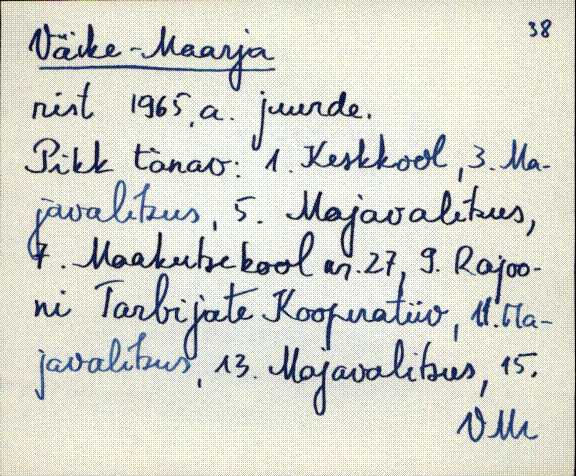 38
Väike-Maarja
rist 1965.a. juurde.
Pikk tänav: 1. Keskkool, 3. Ma-
javalitsus, 5. Majavalitsus,
7. Maakutsekool nr. 27, 9. Rajoo-
ni Tarbijate Kooperatiiv, 11. Ma-
javalitsus, 13. Majavalitsus, 15.